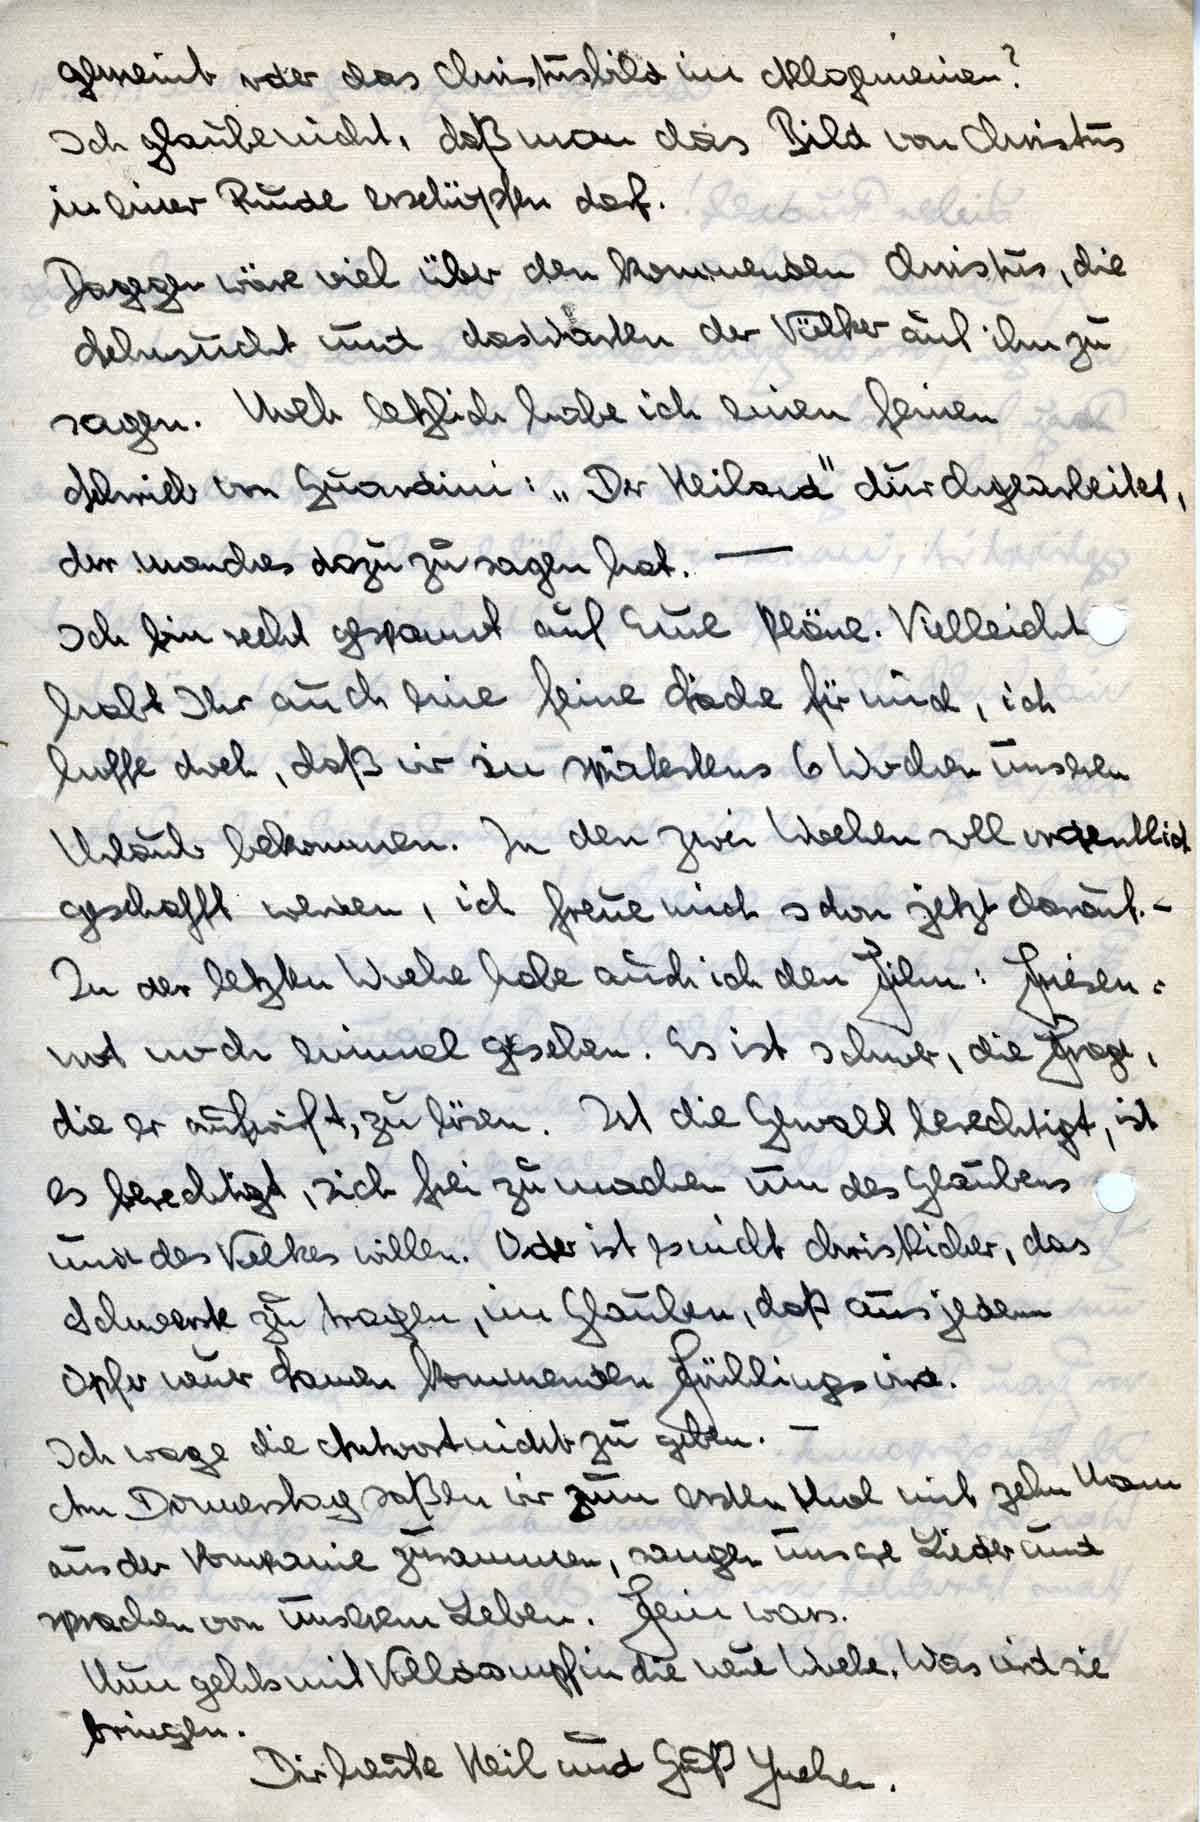 gemeint oder das Christusbild im Allgemeinen?
Ich glaube nicht, daß man das Bild von Christus
in einer Runde erschöpfen darf.
Dagegen wäre viel über den kommenden Christus, die
Sehnsucht und das Warten der Völker auf ihn zu
sagen. Noch letzlich habe ich einen feinen
Schrieb von Guardini: „Der Heiland" durchgearbeitet,
der manches dazu zu sagen hat. —
Ich bin recht gespannt auf Eure Pläne. Vielleicht
habt Ihr auch eine feine Sache für mich, ich
hoffe doch, daß wir in spätestens 6 Wochen unseren
Urlaub bekommen. In den zwei Wochen soll ordentlich
geschafft werden, ich freue mich schon jetzt darauf. –
In der letzten Woche habe auch ich den Film: Friesen-
not noch einmal gesehen. Es ist schwer, die Frage,
die er aufwirft, zu lösen. Ist die Gewalt berechtigt, ist
es berechtigt, sich frei zu machen um des Glaubens
und des Volkes willen. Oder ist es nicht christlicher, das
Schwerste zu tragen, im Glauben, daß aus jedem
Opfer neuer Samen kommenden Frühlings wird.
Ich wage die Antwort nicht zu geben. –
Am Donnerstag saßen wir zum ersten Mal mit zehn Mann
aus der Kompanie zusammen, sangen unsere Lieder und
sprachen von unserem Leben. Fein wars.
Nun gehts mit Volldampf in die neue Woche. Was wird sie
bringen.
Dir heute Heil und Gruß Jochen.